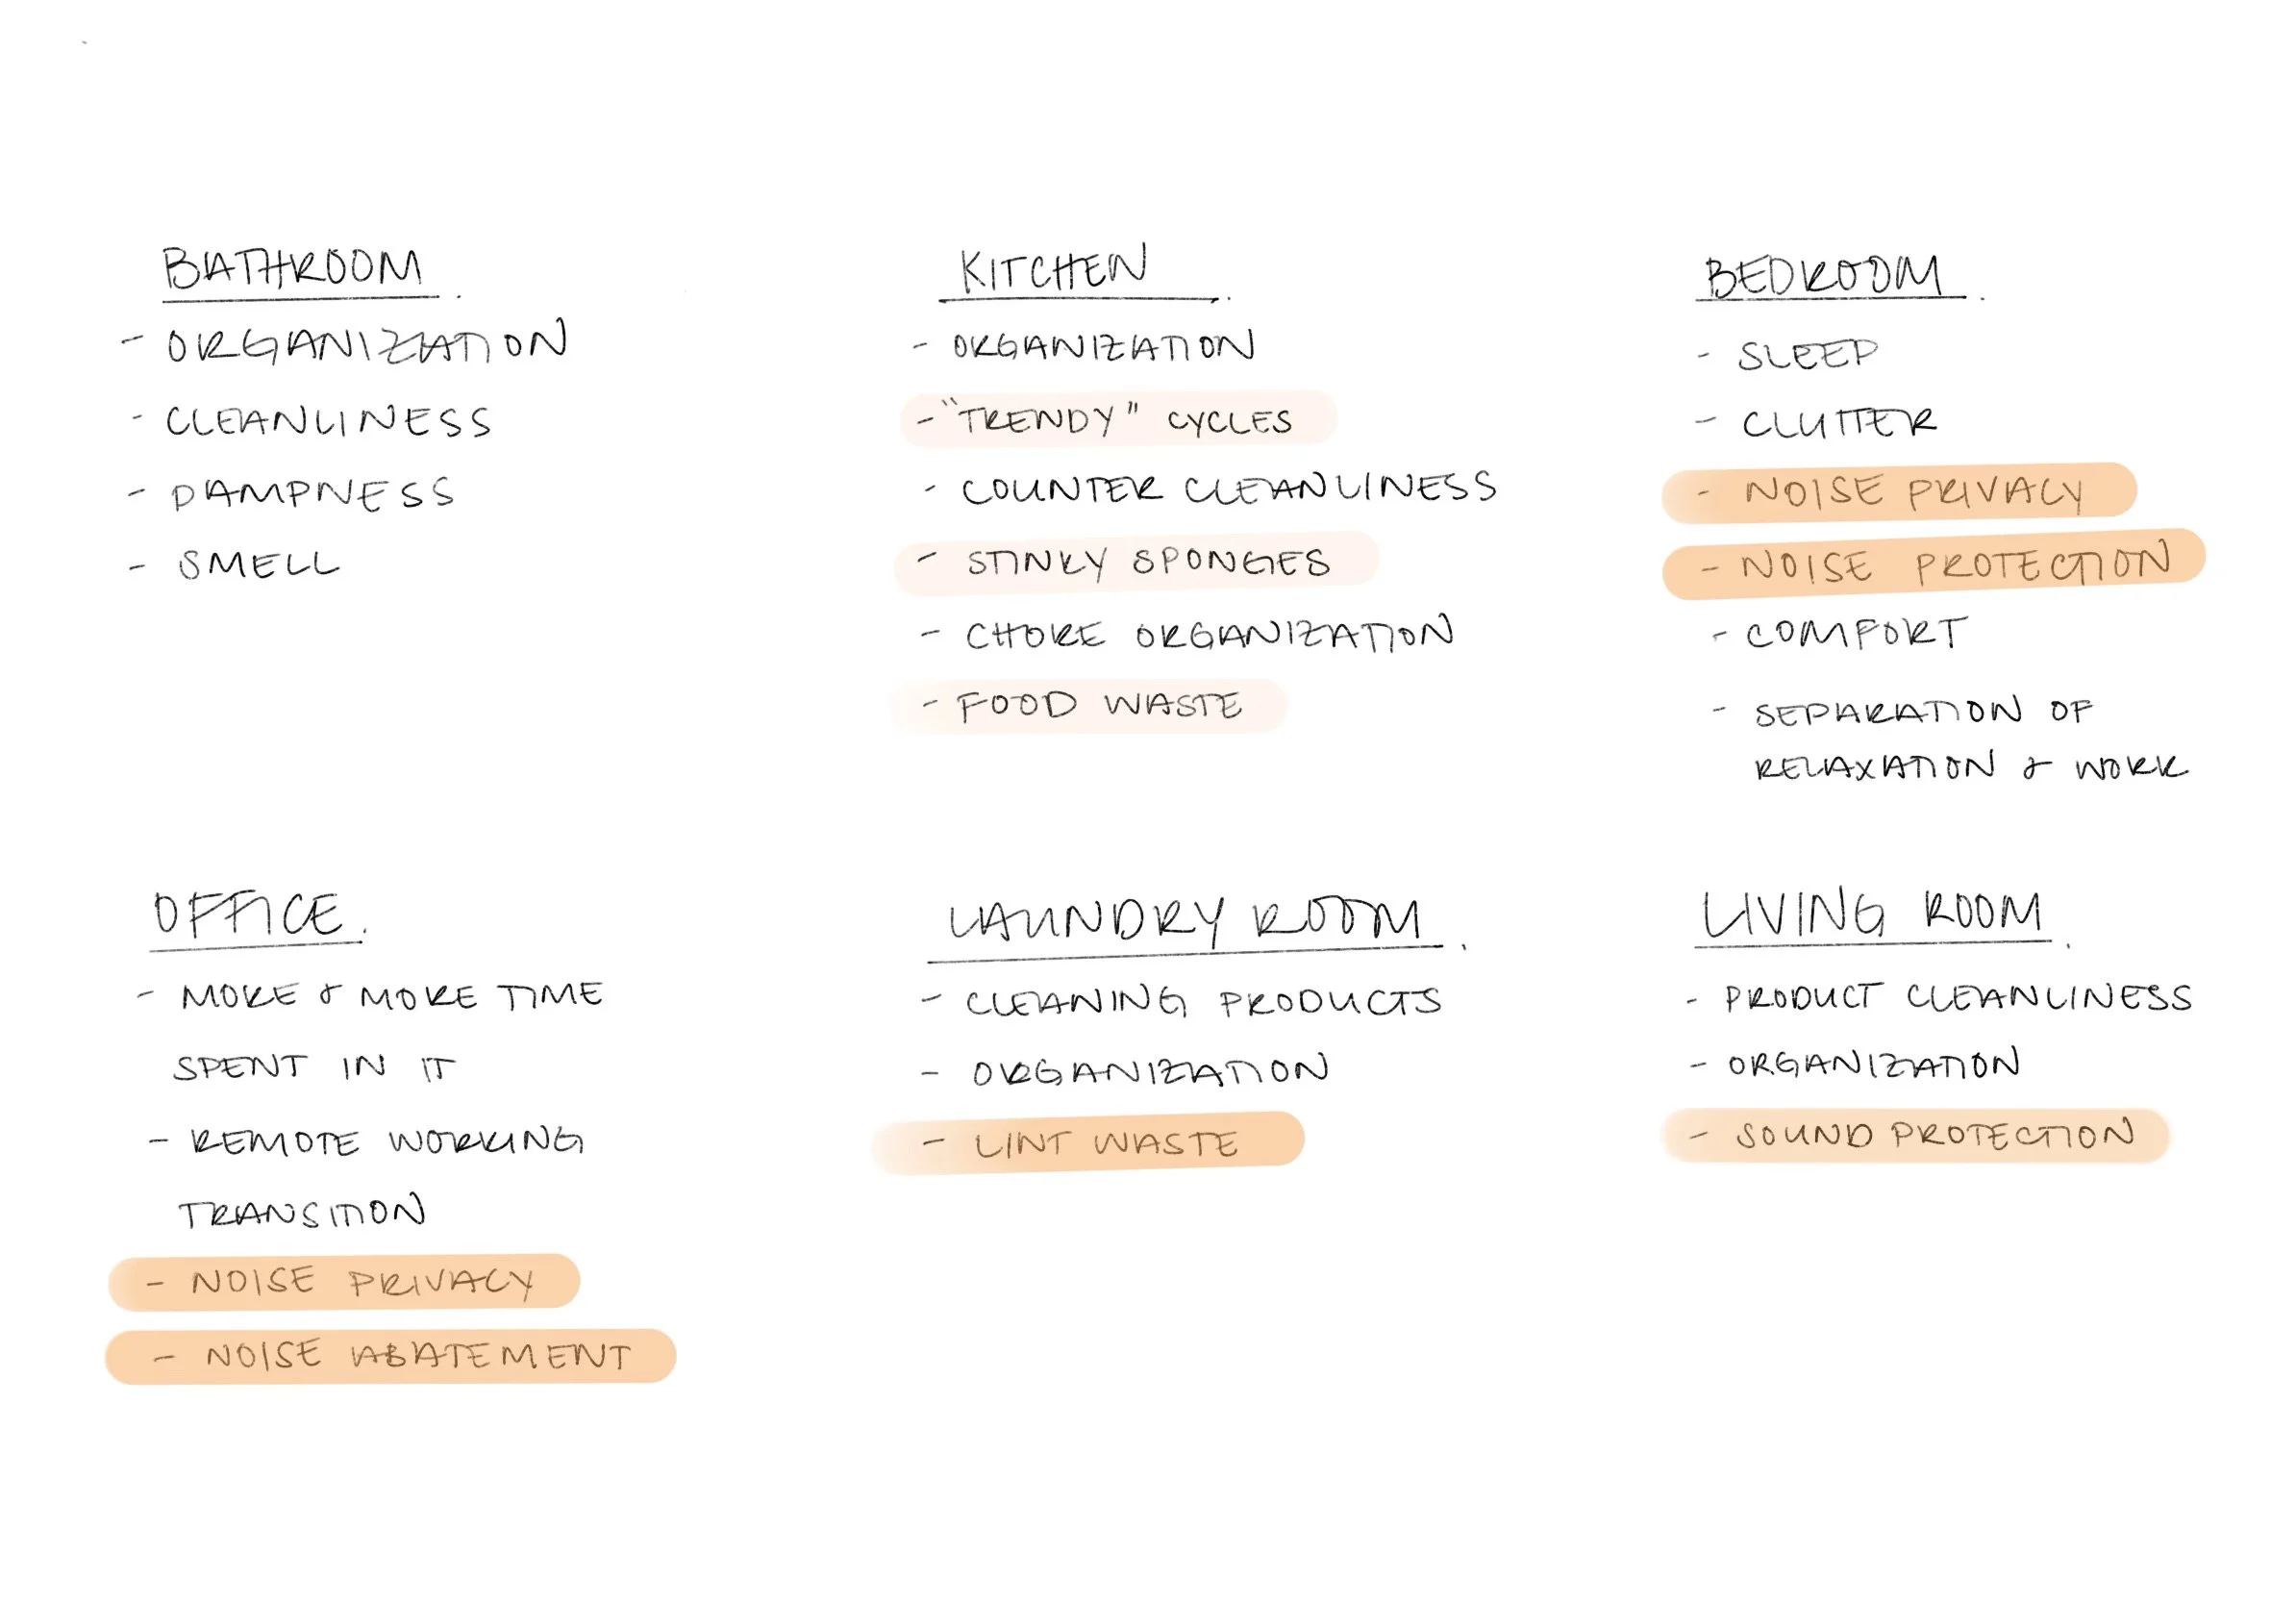 BATHROOM.
- ORGANIZATION
- CLEANLINESS
- DAMPNESS
- SMELL
KITCHEN.
- ORGANIZATION
- "TRENDY" CYCLES
- COUNTER CLEANLINESS
- STINKY SPONGES
- CHORE ORGANIZATION
- FOOD WASTE
BEDROOM.
- SLEEP
- CLUTTER
- NOISE PRIVACY
- NOISE PROTECTION
- COMFORT
- SEPARATION OF
RELAXATION & WORK
OFFICE.
- MORE & MORE TIME
SPENT IN IT
- REMOTE WORKING
TRANSITION
- NOISE PRIVACY
- NOISE ABATEMENT
LAUNDRY ROOM.
- CLEANING PRODUCTS
- ORGANIZATION
- LINT WASTE
LIVING ROOM.
- PRODUCT CLEANLINESS
- ORGANIZATION
- SOUND PROTECTION